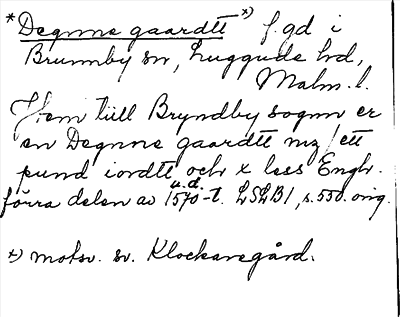 * Degnne gaardtt *) f. gd i
Brunnby sn, Luggude hd,
Malm. l.
Hem tiill Bryndby sognn er
en Degnne gaardtt mz / ett
pund iordtt och x less Engh.
förra delen av 1570-t. u.d. LSLB1, s. 550. orig.
*) motsv. sv. Klockaregård.